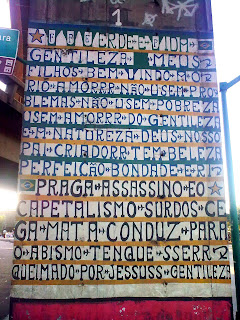 1
GENTILEZA MEUS
FILHOS BEM VINDO AO
RIO AMORRR NÃO USEM PRO
BLEMAS NÃO USEM POBREZA
USEM AMORRR DO GENTILEZA
E A NATUREZA DEUS NOSSO
PAI CRIADORA TEM BELEZA
PERFEIÇÃO BONDADE E RI
PRAGA ASSASSINO EO
CAPETALISMO SURDOS CE
GA MATA CONDUZ PARA
O ABISMO TENQUE SSERR
QUEIMADO POR JESSUSS GENTILEZ